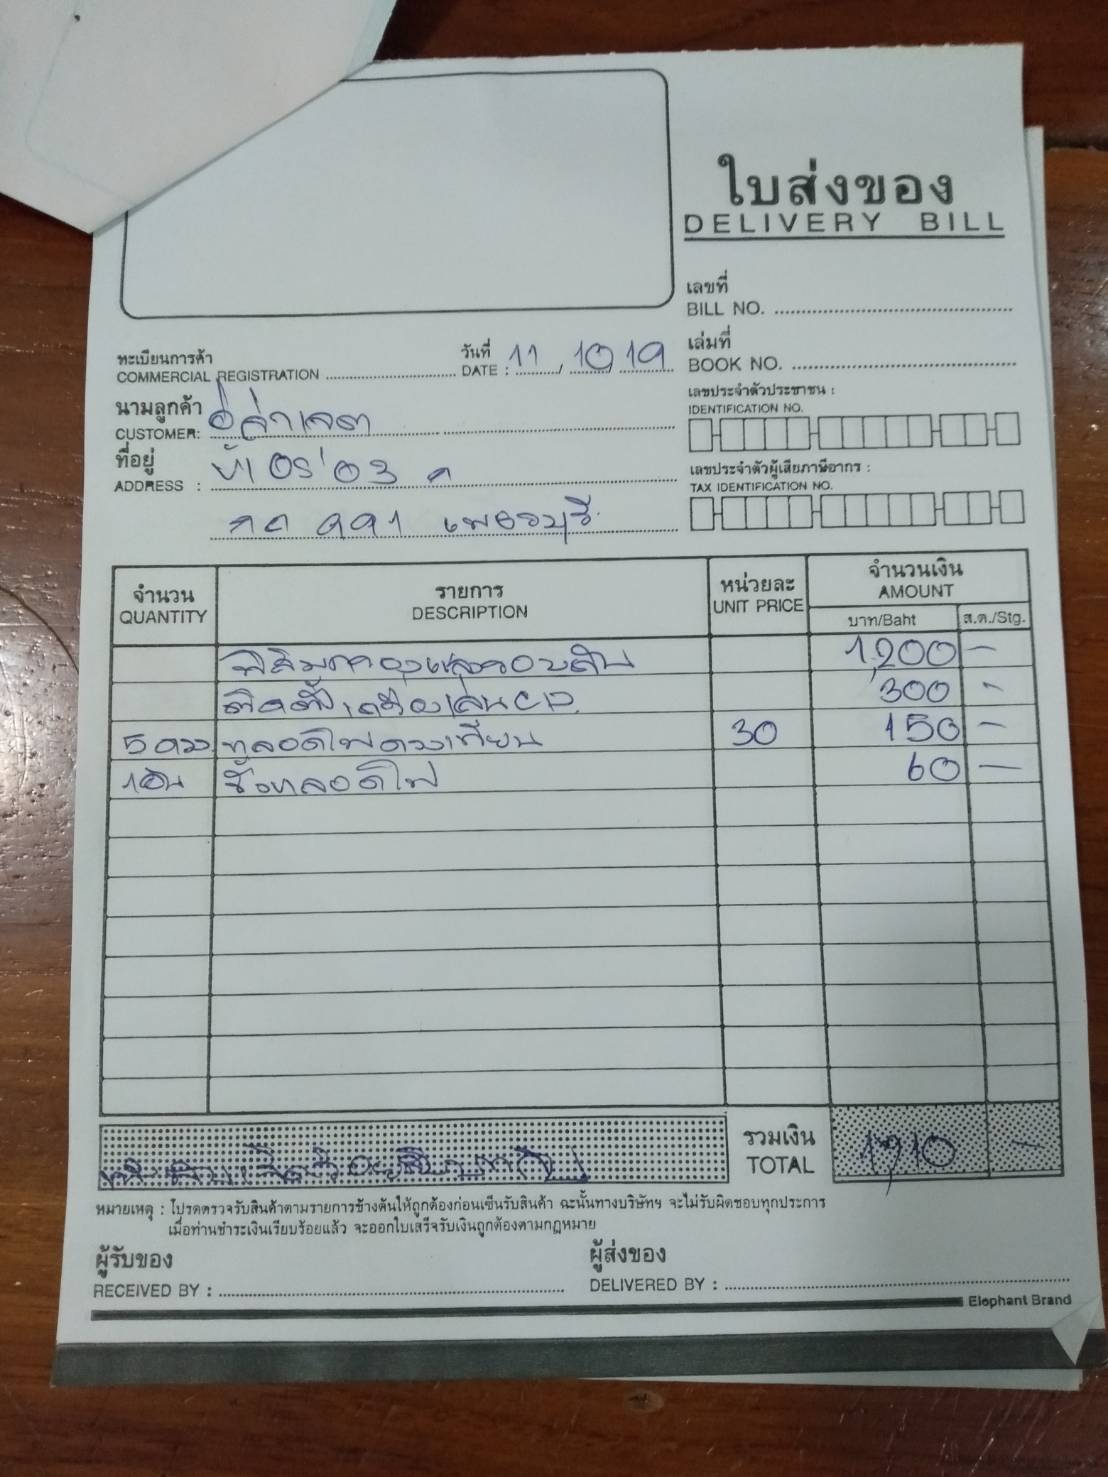 ใบส่งของ
DELIVERY BILL
เลขที่
BILL NO.
เล่มที่
BOOK NO.
ทะเบียนการค้า
COMMERCIAL REGISTRATION
วันที่
DATE : 11 / 10 / 19
นามลูกค้า
CUSTOMER:
ที่อยู่
ADDRESS :
เพชรบุรี
เลขประจำตัวประชาชน :
IDENTIFICATION NO.
เลขประจำตัวผู้เสียภาษีอากร :
TAX IDENTIFICATION NO.
จำนวน รายการ หน่วยละ จำนวนเงิน
QUANTITY DESCRIPTION UNIT PRICE AMOUNT
บาท/Baht ส.ต./Stg.
1,200 -
ติดตั้งเครื่องเล่น CD 300 -
5 ดวง หลอดไฟดวงเทียน 30 150 -
1อัน ขั้วหลอดไฟ 60 -
รวมเงิน
TOTAL 1,910 -
หมายเหตุ : โปรดตรวจรับสินค้าตามรายการข้างต้นให้ถูกต้องก่อนเซ็นรับสินค้า ฉะนั้นทางบริษัทฯ จะไม่รับผิดชอบทุกประการ
เมื่อท่านชำระเงินเรียบร้อยแล้ว จะออกใบเสร็จรับเงินถูกต้องตามกฎหมาย
ผู้รับของ
RECEIVED BY :
ผู้ส่งของ
DELIVERED BY :
Elephant Brand